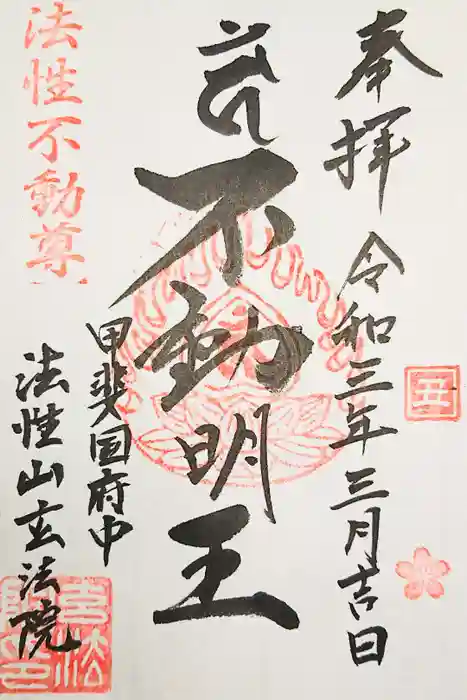 奉拝
令和三年三月吉日
不動明王
甲斐国府中
法性山玄法院
法性不動尊